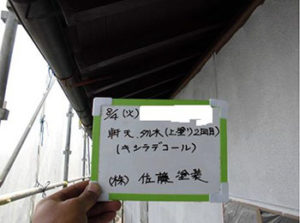 8/4 (火)
軒天、タル木 (上塗り2回目)
(キシラデコール)
(株) 佐藤塗装